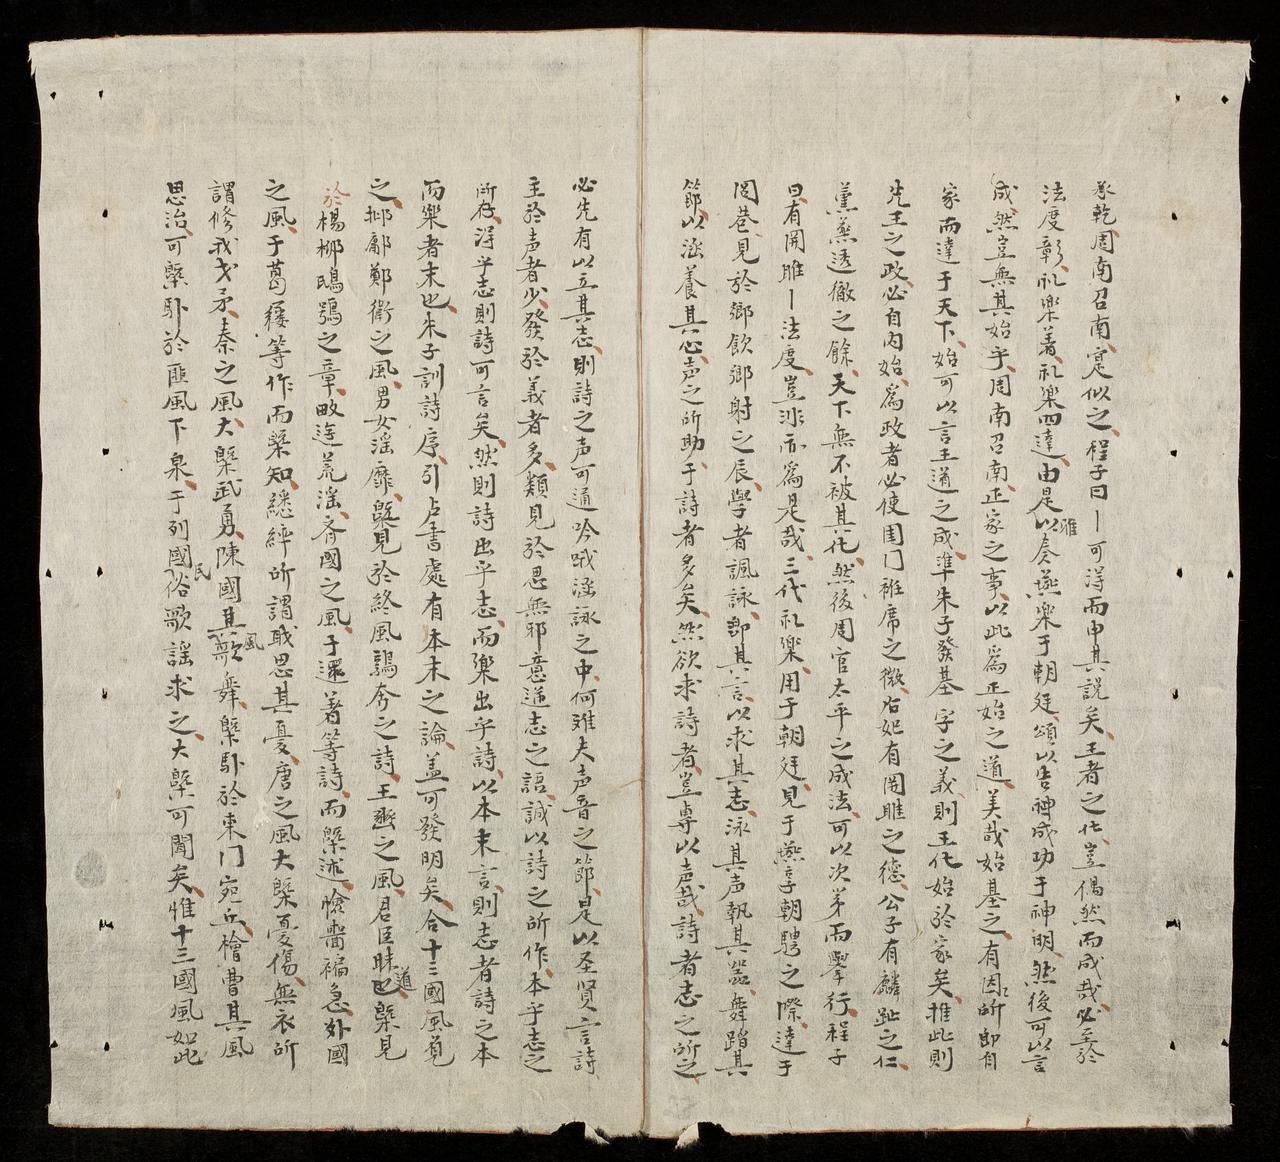 承乾周南召南寔似之程子曰丨可得而申其説矣王者之化豈偶然而成哉必至於
法度彰礼楽著礼楽四達由是以雅奏燕楽于朝廷頌以告神成功于神明然後可以言
成然豈無其始乎周南召南正家之事以此為正始之道美哉始基之有因所即自
家而達于天下始可以言王道之成準朱子發基字之義則王化始於家矣推此則
先王之政必自内始為政者必使閨门袵席之微后妃有関雎之德公子有麟趾之仁
薫蒸透徹之餘天下無不被其化然後周官太平之成法可以次第而舉行程子
曰有関雎丨法度豈非亦為是哉三代礼楽用于朝廷見于燕享朝聘之際達于
閭巷見於鄉飲鄉射之辰學者諷詠即其言以求其志泳其声執其器舞蹈其
節以涵養其心声之所助于詩者多矣然欲求詩者豈專以声哉詩者志之所之
必先有以立其志則詩之声可通吟哦涵詠之中何难夫声音之節是以圣贤言詩
主於声者少發於義者多類見於思無邪意逆志之語誠以詩之所作本乎志之
所存淂乎志則詩可言矣然則詩出乎志而楽出乎詩以本末言則志者詩之本
而樂者末也朱子訓詩序引占書處有本末之論盖可發明矣合十三國風覓
之邶鄘鄭衛之風男女滛靡槩見於終風鶉奔之詩王豳之風君臣昧道也槩見
於楊柳鴟鴞之章畋逰荒滛齐國之風于還著等詩而槩述儉嗇褊急外國
之風于葛屨等作而槩知蟋蟀所謂職思其憂唐之風大槩憂傷無衣所
謂修我戈矛秦之風大槩武勇陳國風且歌舞槩卧於東门宛丘檜曹其風
思治可槩卧於匪風下泉于列國民俗歌謡求之大槩可聞矣惟十三國風如此